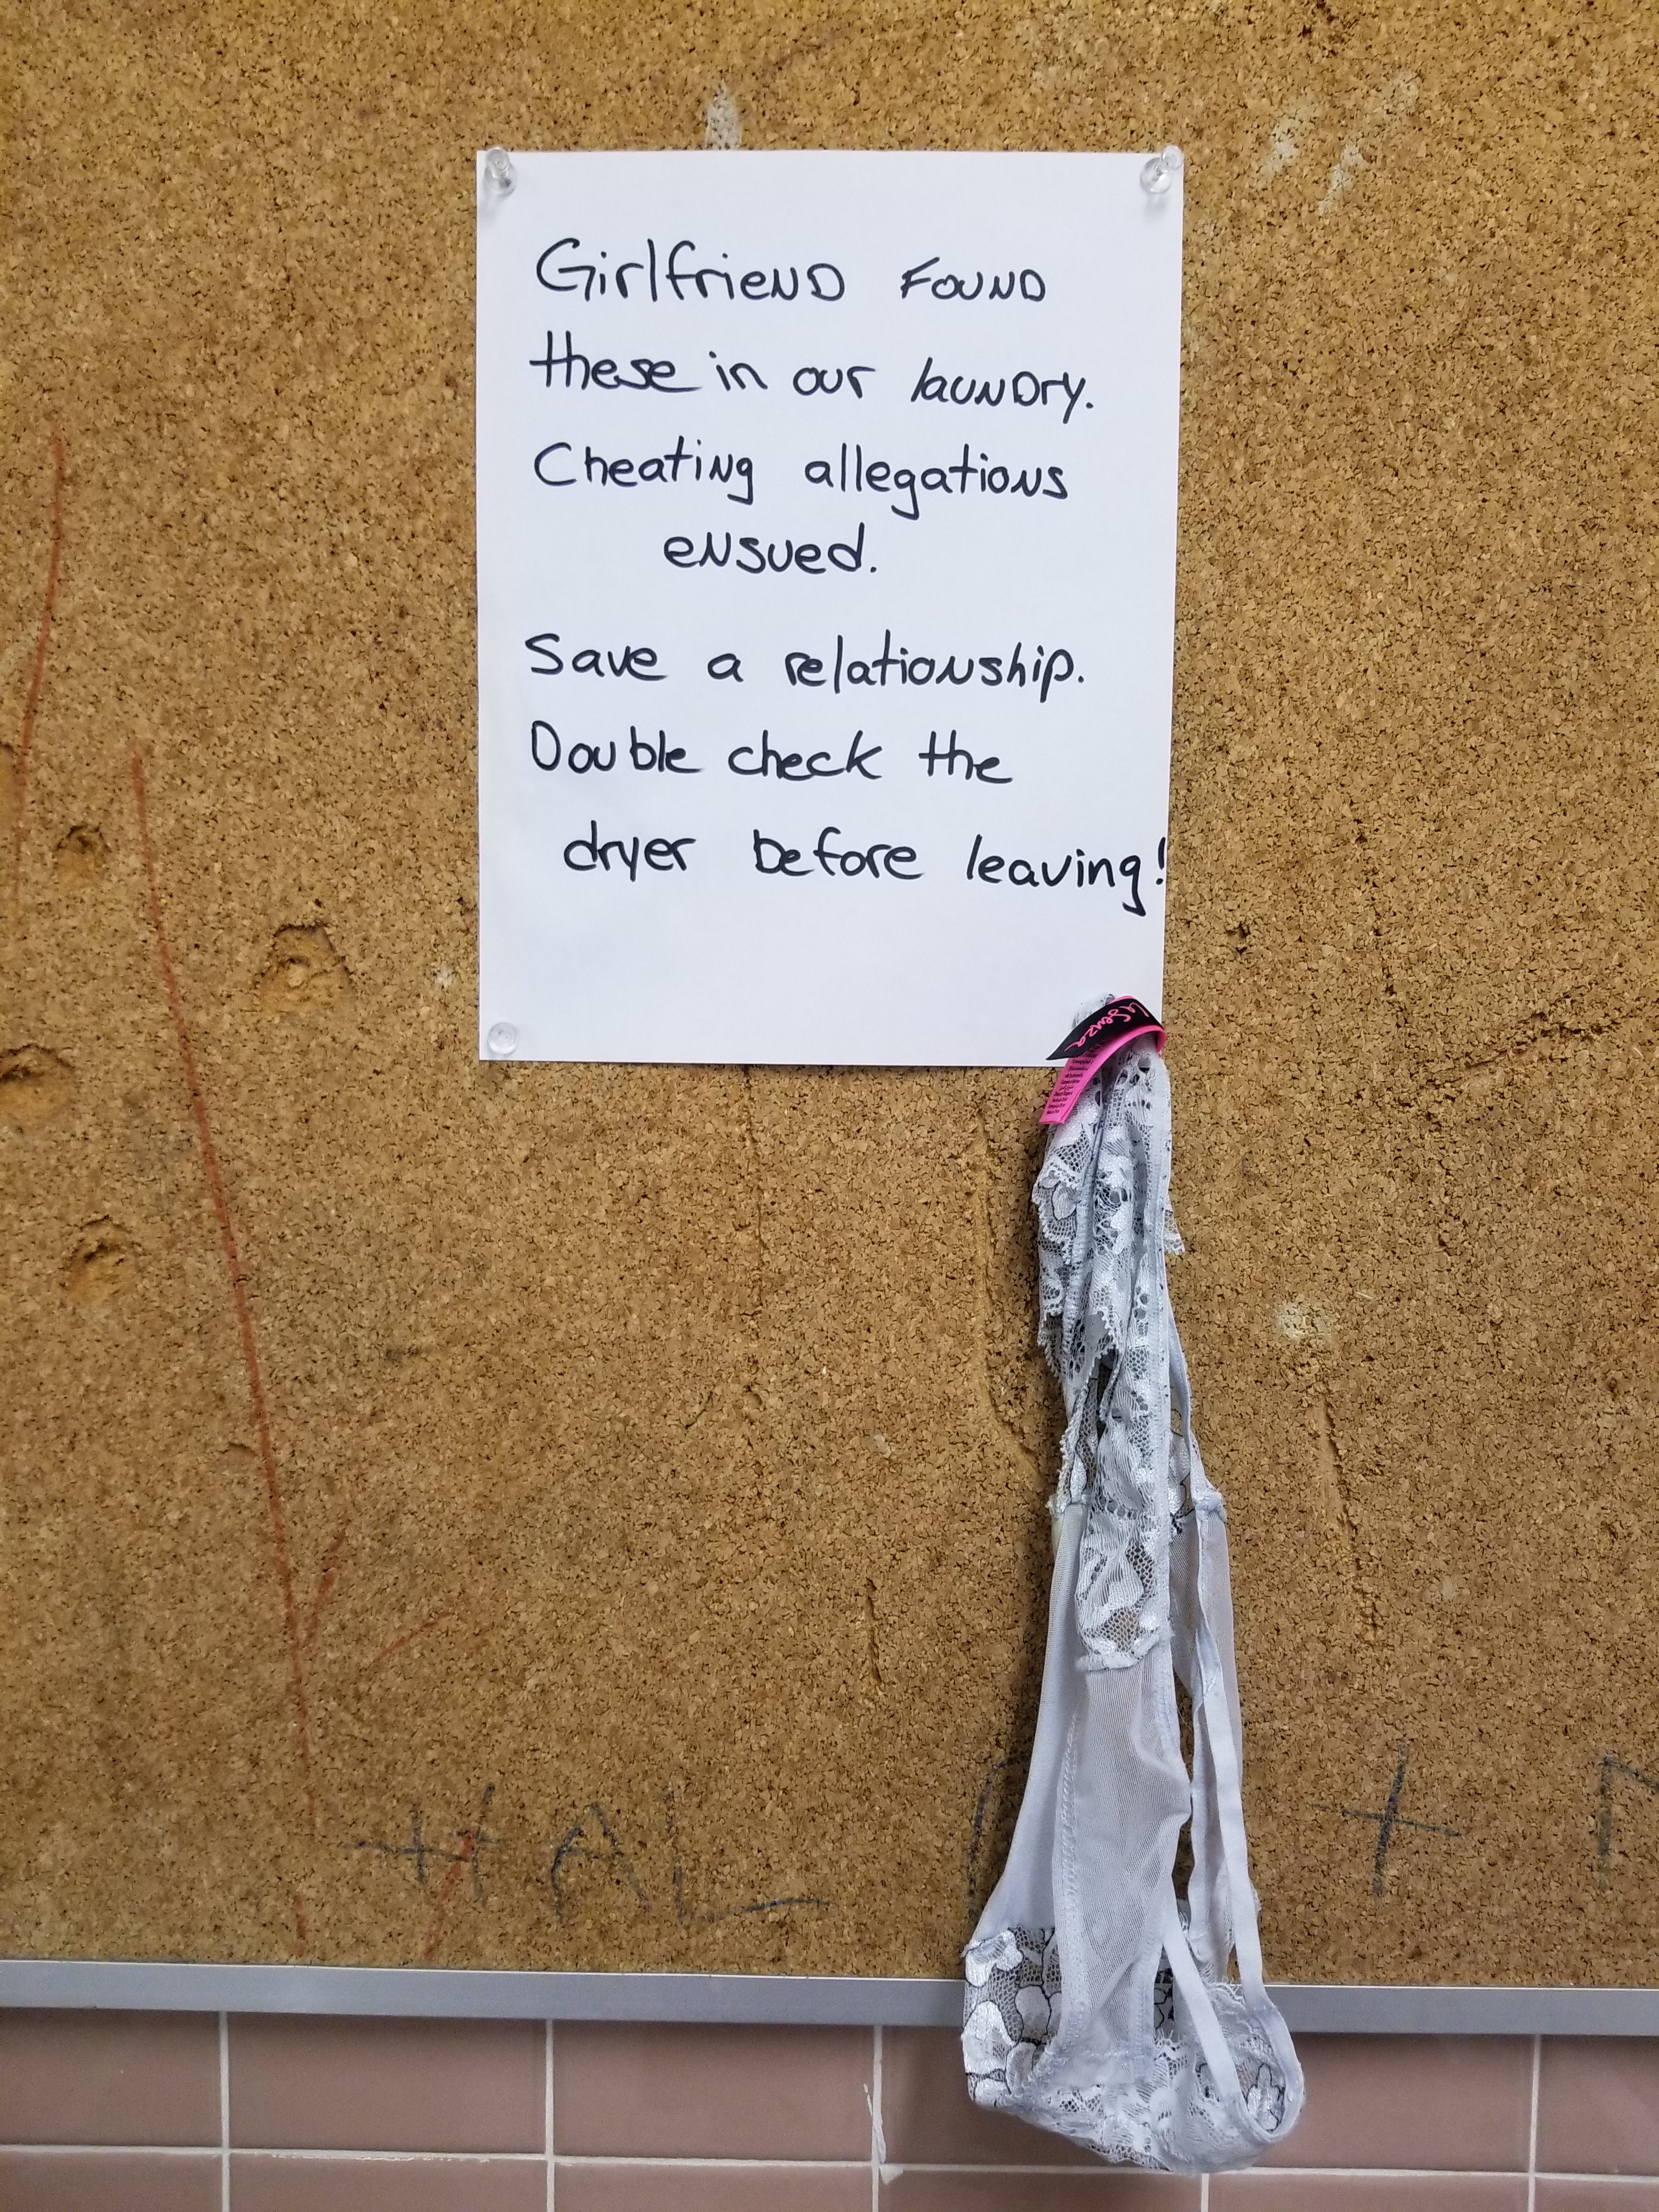 Girlfriend Found
these in our laundry.
Cheating allegations
ensued.
Save a relationship.
Double check the
dryer before leaving!
La Senza
HAL
+